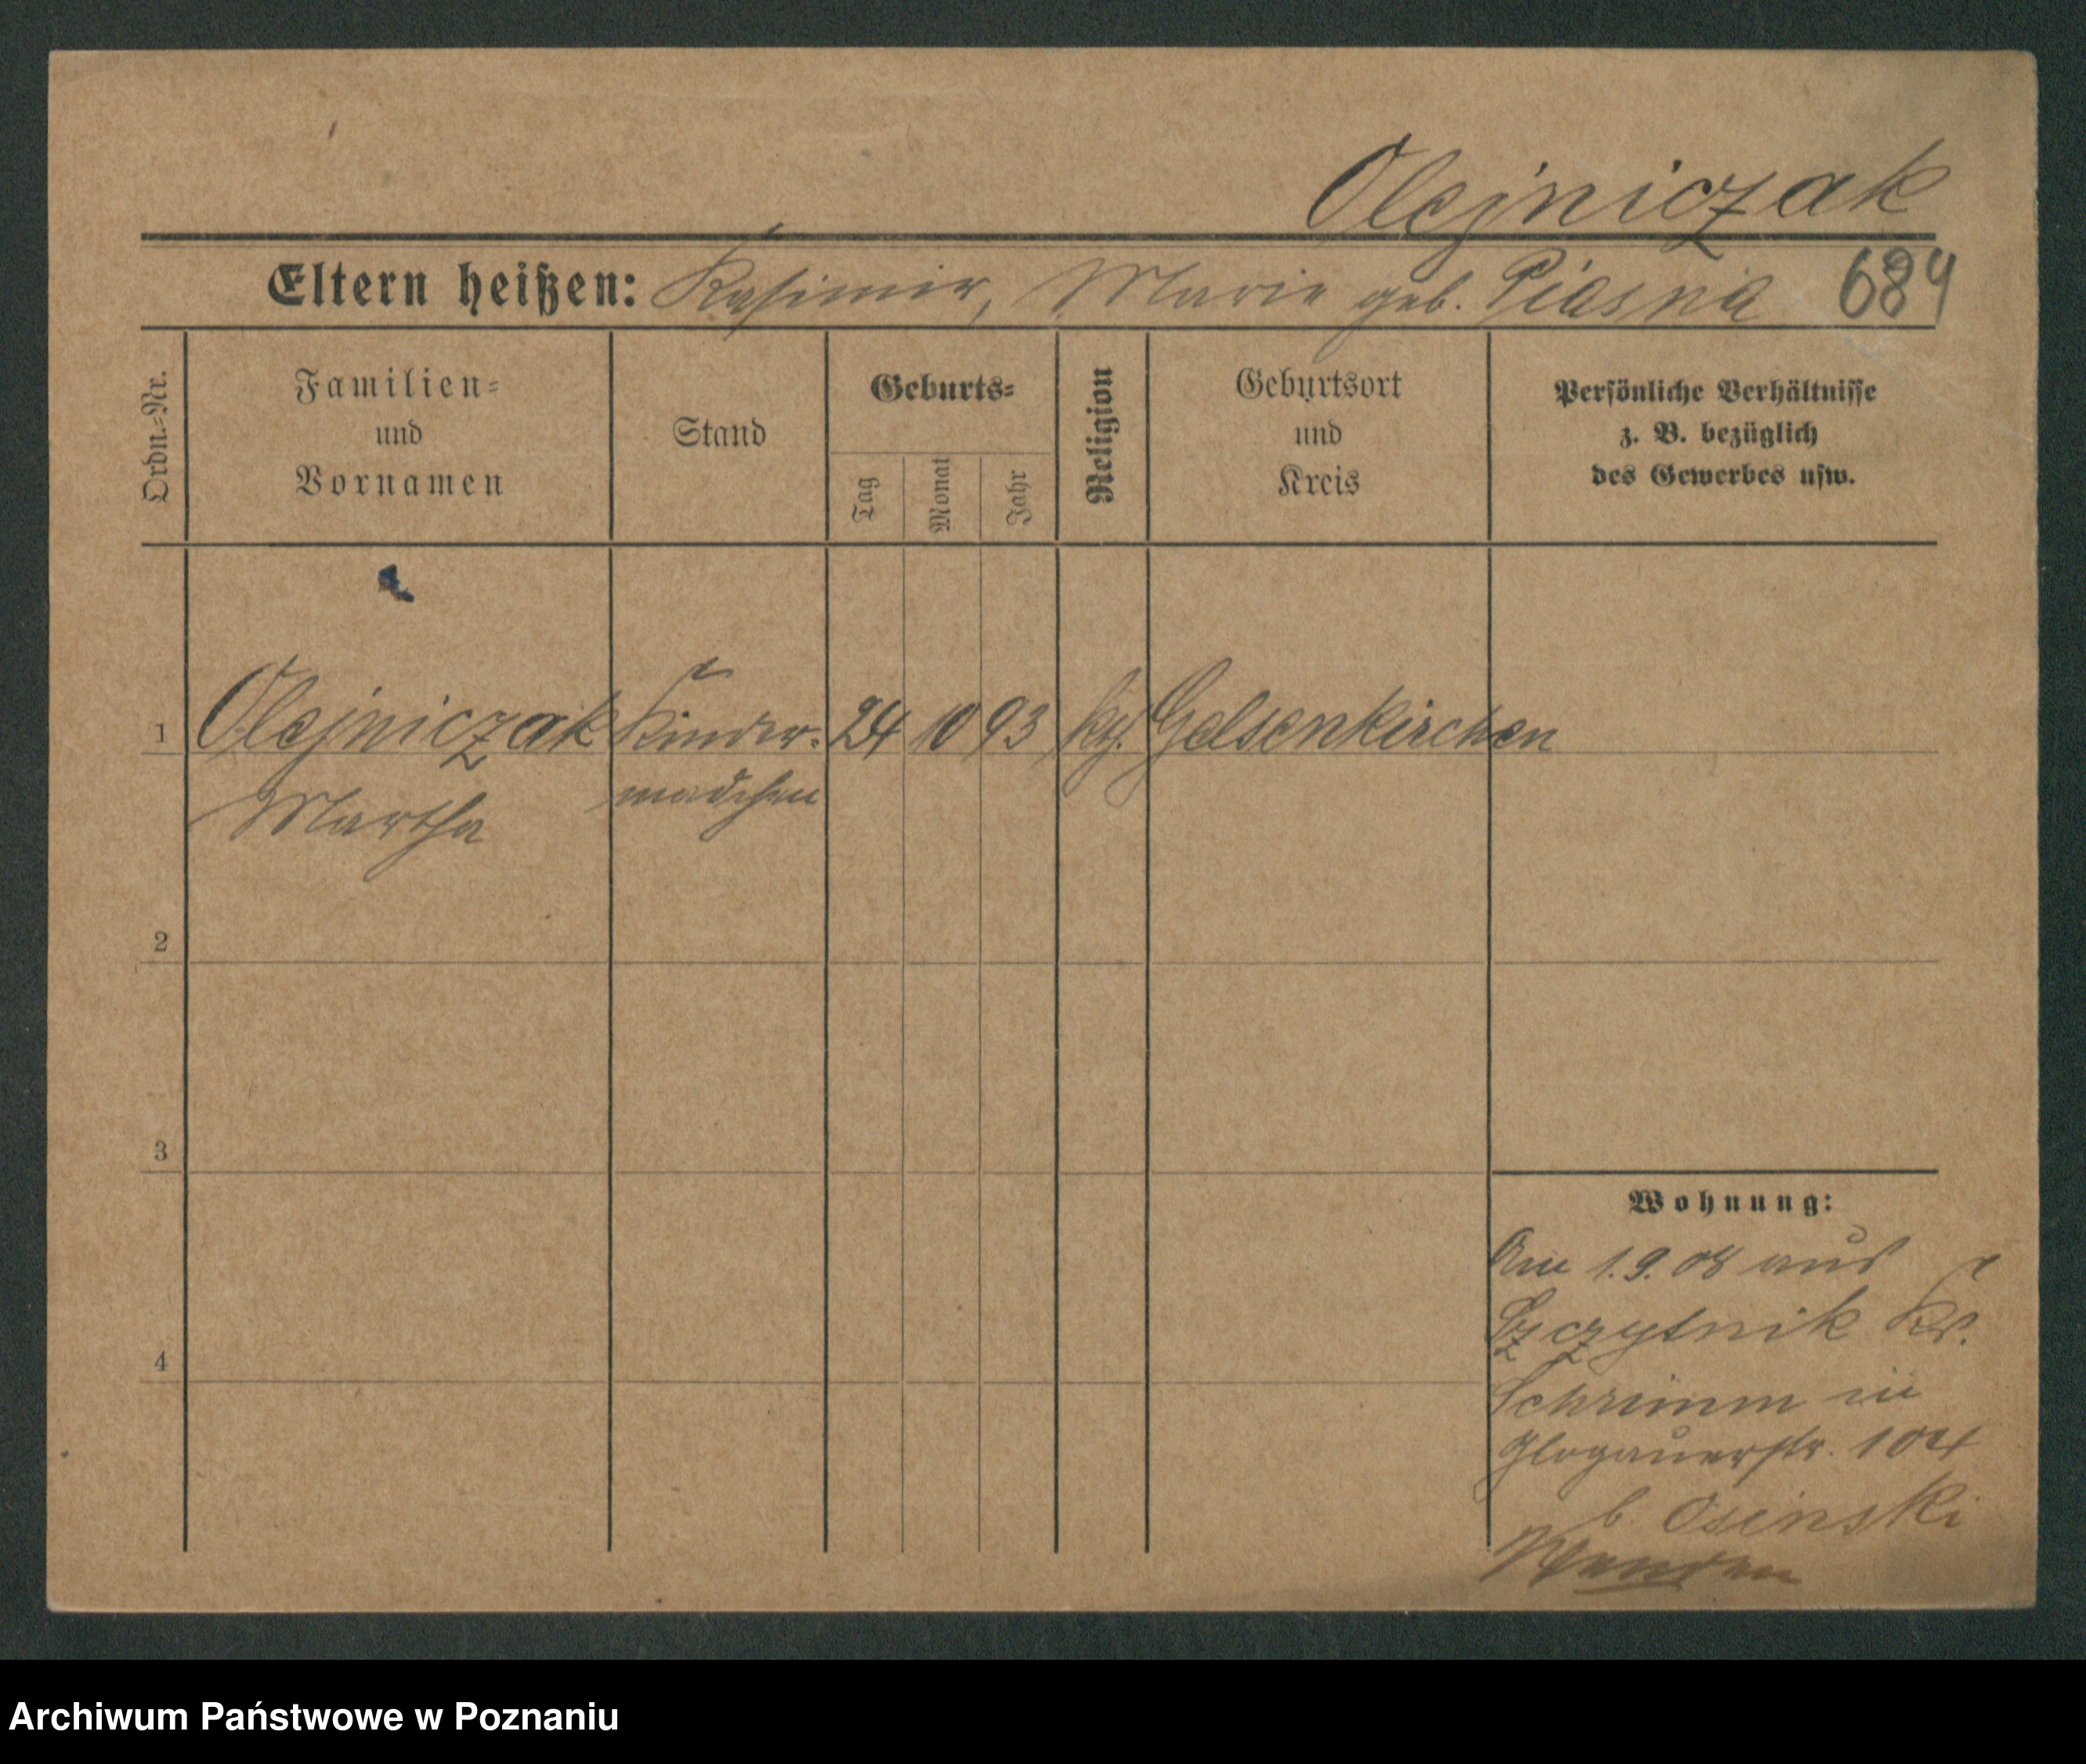 Olejniczak
Eltern heißen: Kasimir, Marie geb. Piasna 684
Ordn.=Nr.
Familien=
und
Vornamen
Stand
Geburts=
Tag
Monat
Jahr
Religion
Geburtsort
und
Kreis
Persönliche Verhältnisse
z. B. bezüglich
des Gewerbes usw.
1 Olejniczak Kinder- 24 10 93 kt. Gelsenkirchen
Martha mädchen
2
3
4
Wohnung:
Am 1.9.08 aus
Szczytnik Kr.
Schrimm in
Glogauerstr. 104
b. Osinski
Wenden
Archiwum Państwowe w Poznaniu